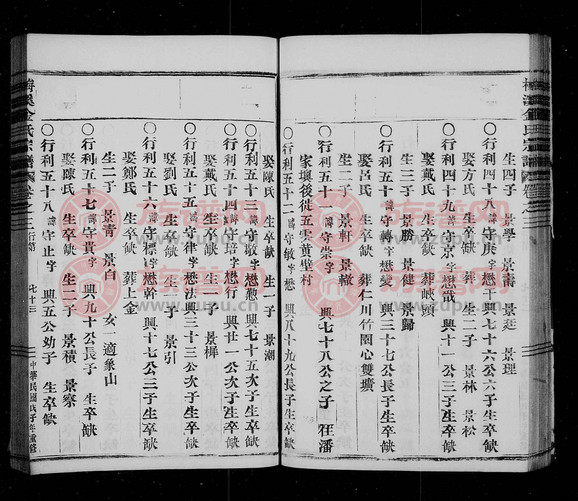 生四子 景學 景壽 景廷 景理
〇行利四十八 諱守庚 字懋 興七十六公六子生卒缺
娶方氏 生卒缺 葬 生二子 景林 景松
〇行利四十九 諱守京 字懋戩 興十一公 子生卒缺
娶戴氏 生卒缺 葬峽頭
生三子 景勝 景健 景歸
〇行利五十 諱守轉 字懋變 興三十七公長子生卒缺
娶呂氏 生卒缺 葬仁川竹園心雙壙
生二子 景軒 景轍
〇行利五十一 諱守崇 字 興七十八公之子 在潘
家墺後徙五雲黃壁村
〇行利五十二 諱守敏 字懋 興八十九公長子生卒缺
〇行利五十三 諱守敬 字懋懃 興七十五公次子生卒缺
娶陳氏 生卒缺 生一子 景潮
〇行利五十四 諱守培 字懋行 興廿一公次子生卒缺
娶戴氏 生卒缺 生一子 景樨
〇行利五十五 諱守律 字懋法 興三十三公次子生卒缺
娶劉氏 生卒缺 生一子 景引
〇行利五十六 諱守標 字懋幹 興十七公三子生卒缺
娶鄭氏 生卒缺 葬上金
生二子 景青 景白 女一適象山
〇行利五十七 諱守貴 字 興九十公長子 生卒缺
娶陳氏 生卒缺 生二子 景積 景察
〇行利五十八 諱守止 字 興五公幼子 生卒缺
梅溪金氏宗譜 卷之二 行譜 七十三 中華民國戊子年重修
族譜网
www.zupu.cn
族譜网
www.zupu.cn